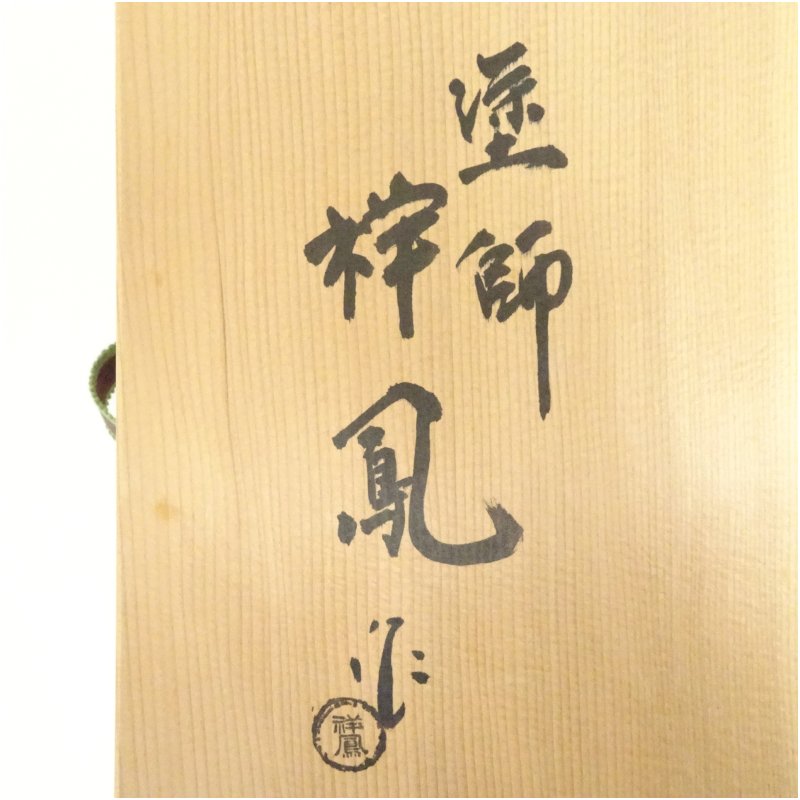 塗師
祥鳳作
祥鳳